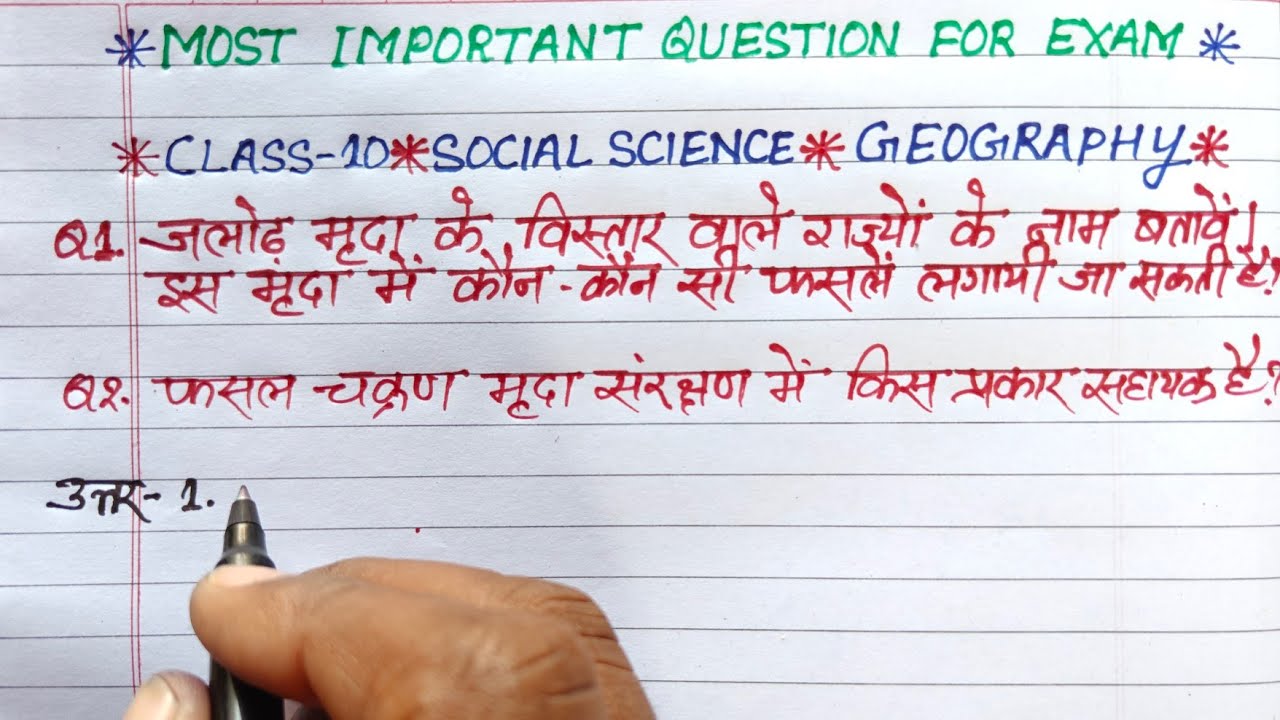 *MOST IMPORTANT QUESTION FOR EXAM*
*CLASS-10*SOCIAL SCIENCE*GEOGRAPHY*
Q1. जलोढ़ मृदा के विस्तार वाले राज्यों के नाम बतावें।
इस मृदा में कौन-कौन सी फसलें लगायी जा सकती हैं?
Q2. फसल चक्रण मृदा संरक्षण में किस प्रकार सहायक है?
उत्तर- 1.